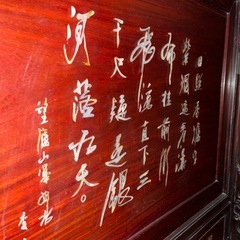 日照香炉生
紫烟遥看瀑
布挂前川
飛流直下三
千尺疑是銀
河落九天。
望庐山瀑布